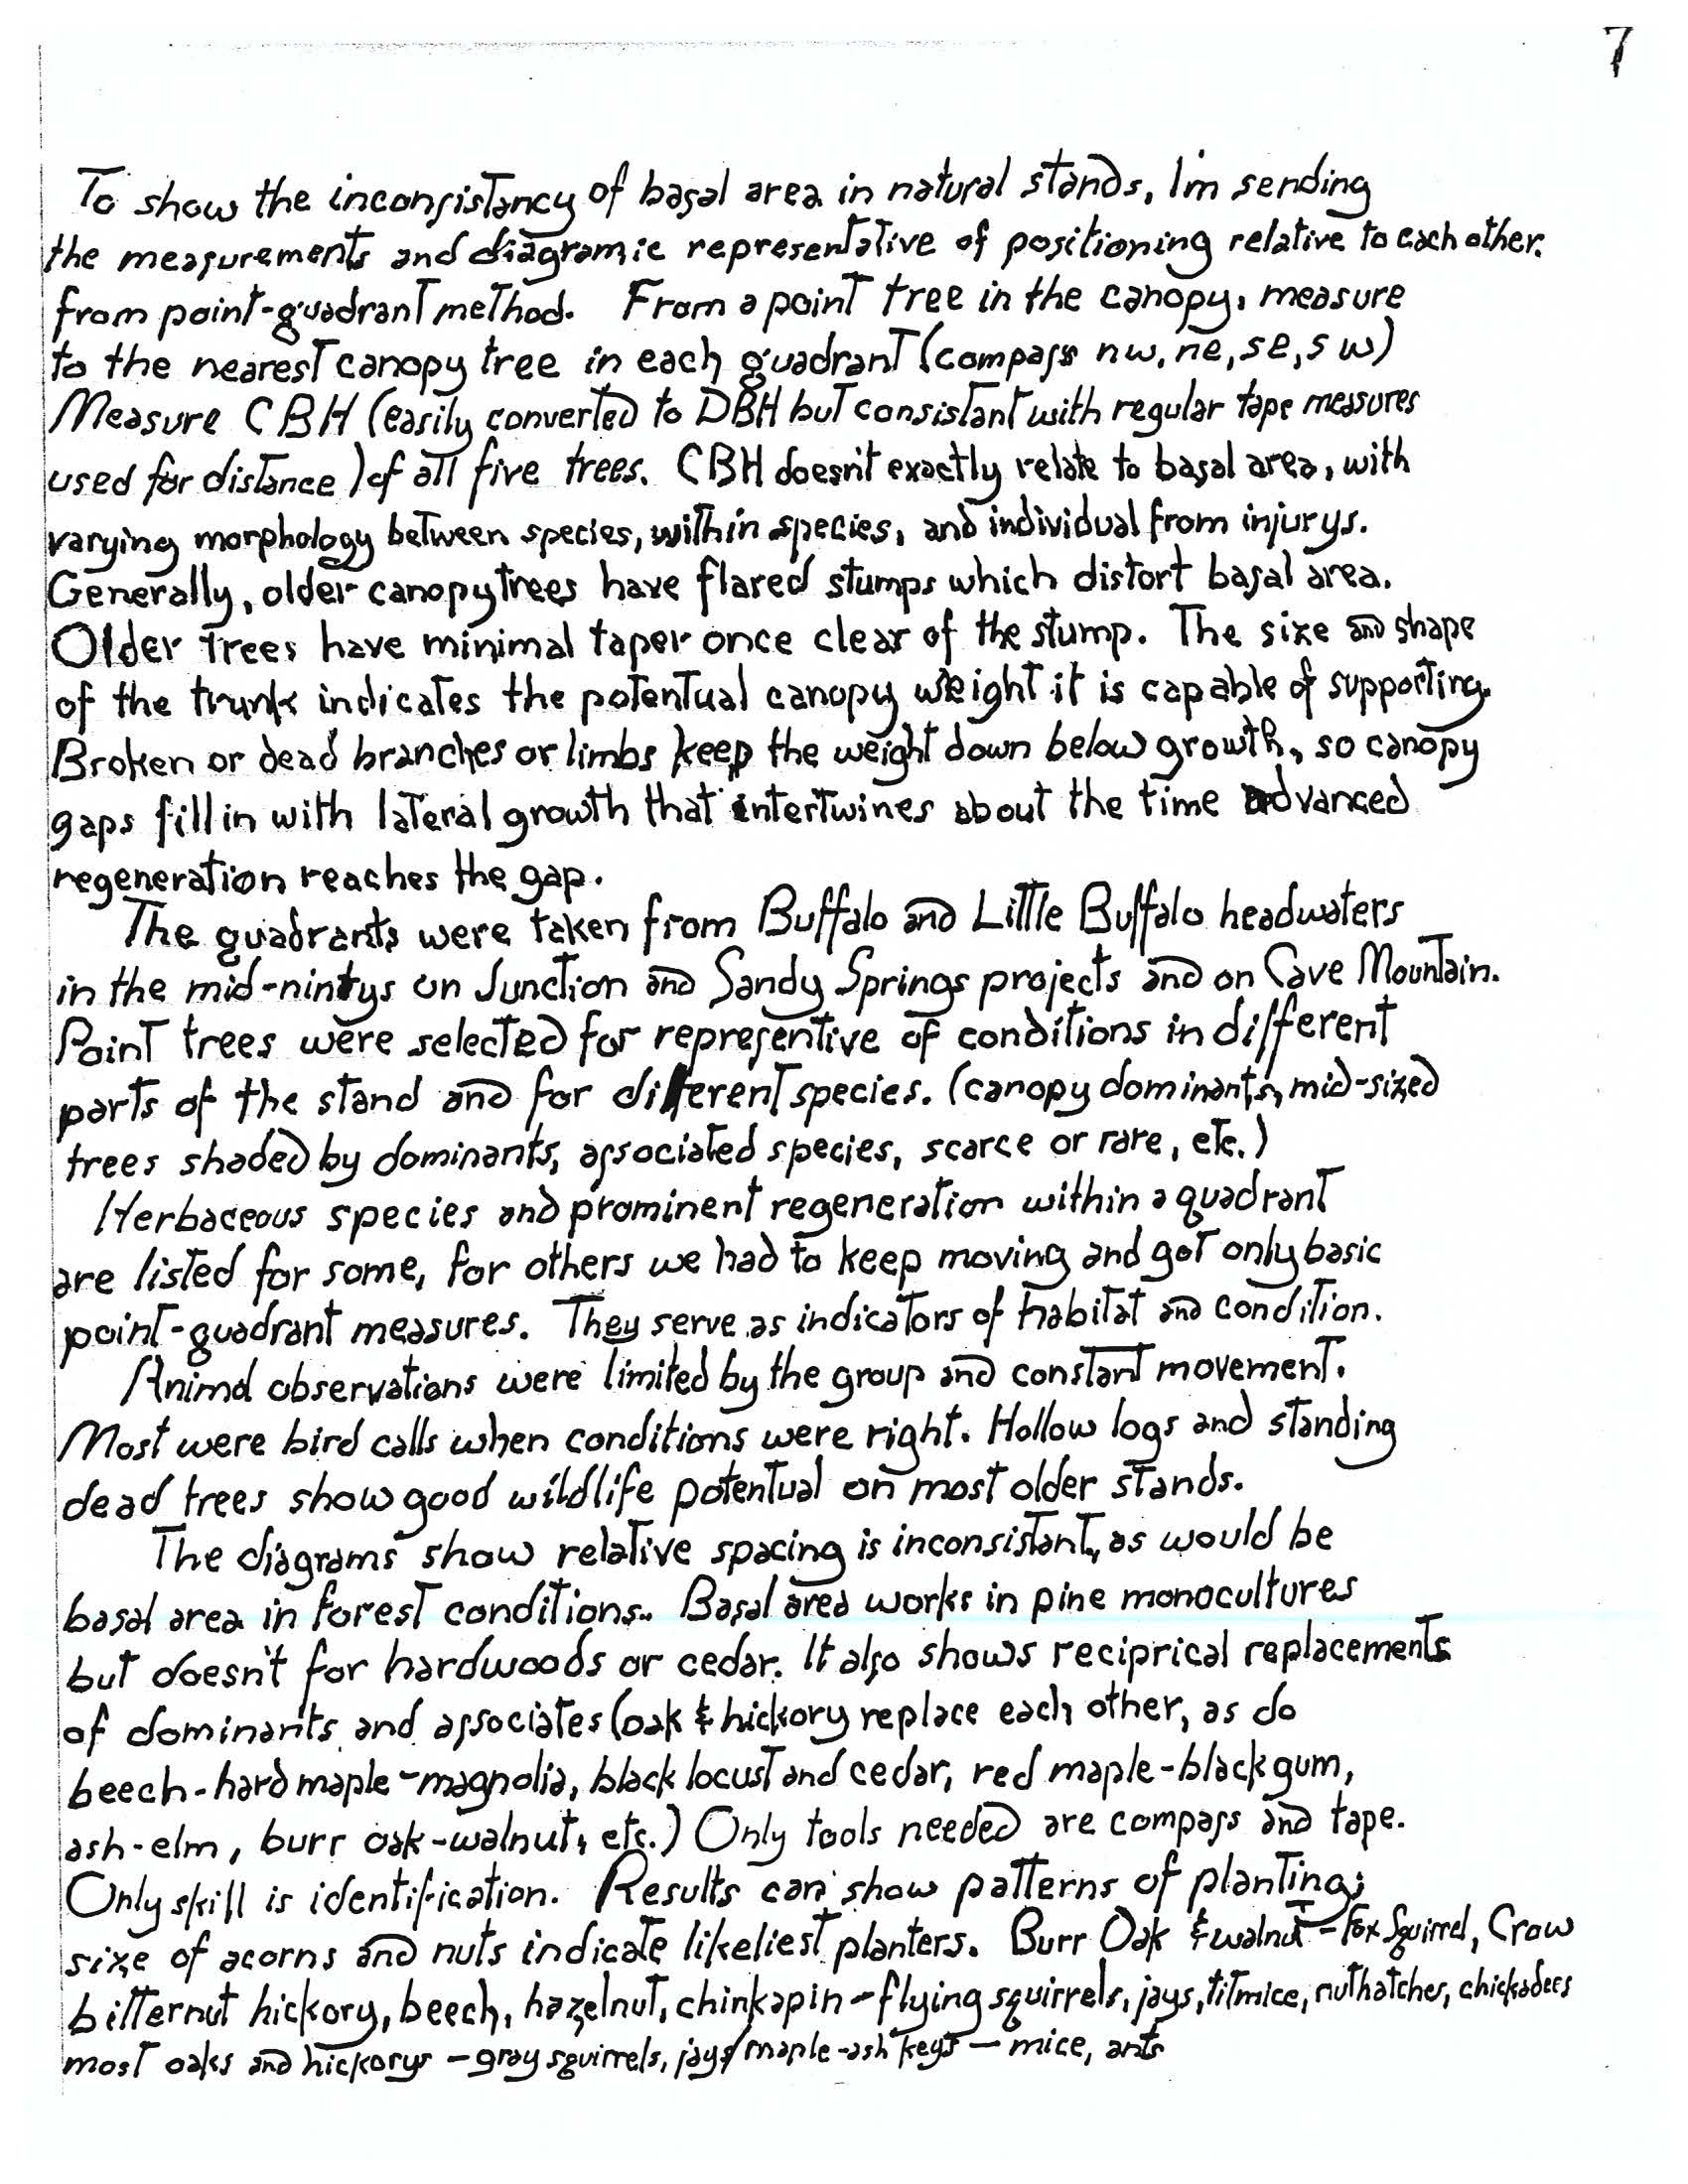 7
To show the inconsistancy of basal area in natural stands, I'm sending
the measurements and diagramic representative of positioning relative to each other.
from point-quadrant method. From a point tree in the canopy, measure
to the nearest canopy tree in each quadrant (compass nw, ne, se, sw)
Measure CBH (easily converted to DBH but consistant with regular tape measures
used for distance) of all five trees. CBH doesn't exactly relate to basal area, with
varying morphology between species, within species, and individual from injurys.
Generally, older canopy trees have flared stumps which distort basal area.
Older trees have minimal taper once clear of the stump. The size and shape
of the trunk indicates the potentual canopy weight it is capable of supporting.
Broken or dead branches or limbs keep the weight down below growth, so canopy
gaps fill in with lateral growth that intertwines about the time advanced
regeneration reaches the gap.
The quadrants were taken from Buffalo and Little Buffalo headwaters
in the mid-nintys on Junction and Sandy Springs projects and on Cave Mountain.
Point trees were selected for representive of conditions in different
parts of the stand and for different species. (canopy dominants, mid-sized
trees shaded by dominants, associated species, scarce or rare, etc.)
Herbaceous species and prominent regeneration within a quadrant
are listed for some, for others we had to keep moving and got only basic
point-quadrant measures. They serve as indicators of habitat and condition.
Animal observations were limited by the group and constant movement.
Most were bird calls when conditions were right. Hollow logs and standing
dead trees show good wildlife potentual on most older stands.
The diagrams show relative spacing is inconsistant, as would be
basal area in forest conditions. Basal area works in pine monocultures
but doesn't for hardwoods or cedar. It also shows reciprical replacements
of dominants and associates (oak & hickory replace each other, as do
beech-hard maple-magnolia, black locust and cedar, red maple-blackgum,
ash-elm, burr oak-walnut, etc.) Only tools needed are compass and tape.
Only skill is identification. Results can show patterns of planting;
size of acorns and nuts indicate likeliest planters. Burr Oak & walnut - Fox Squirrel, Crow
bitternut hickory, beech, hazelnut, chinkapin - flying squirrels, jays, titmice, nuthatches, chickadees
most oaks and hickorys - gray squirrels, jays/maple-ash keys - mice, ants